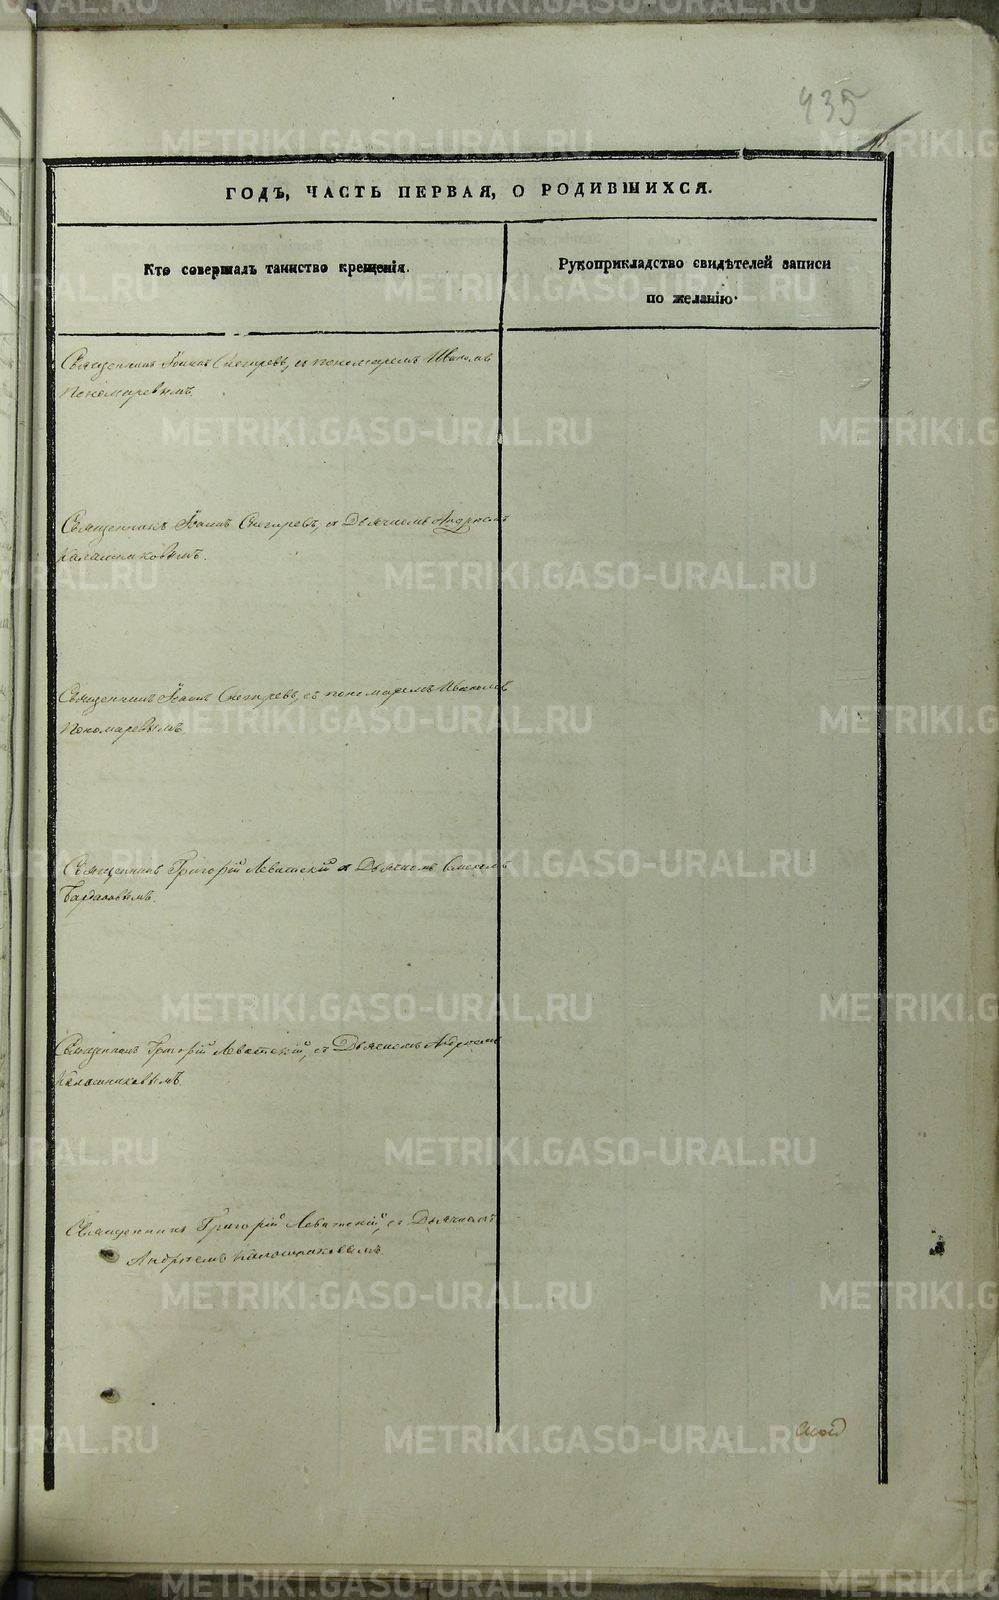 435
ГОДЪ, ЧАСТЬ ПЕРВАЯ, О РОДИВШИХСЯ.
Кто совершалъ таинство крещенія.
Рукоприкладство свидѣтелей записи
по желанію.
Священникъ Іоаннъ Снегиревъ, съ пономаремъ Иваномъ
Пономаревымъ.
Священникъ Іоаннъ Снегиревъ, съ Дьячкомъ Андреемъ
Калашниковымъ.
Священникъ Іоаннъ Снегиревъ, съ пономаремъ Иваномъ
Пономаревымъ.
Священникъ Григорій Леватскій съ Дьячкомъ
Священникъ Григорій Леватскій, съ Дьячкомъ Андреемъ
Калашниковымъ.
Священникъ Григорій Леватскій, съ Дьячкомъ
Андреемъ Калашниковымъ.
METRIKI.GASO-URAL.RU